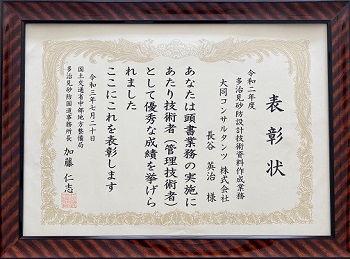 表彰状
令和二年度
多治見砂防設計技術資料作成業務
大同コンサルタンツ株式会社
長谷 英治 様
あなたは頭書業務の実施に
あたり技術者(管理技術者)
として優秀な成績を挙げら
れました
ここにこれを表彰します
令和三年七月二十日
国土交通省中部地方整備局
多治見砂防国道事務所長 加藤 仁志